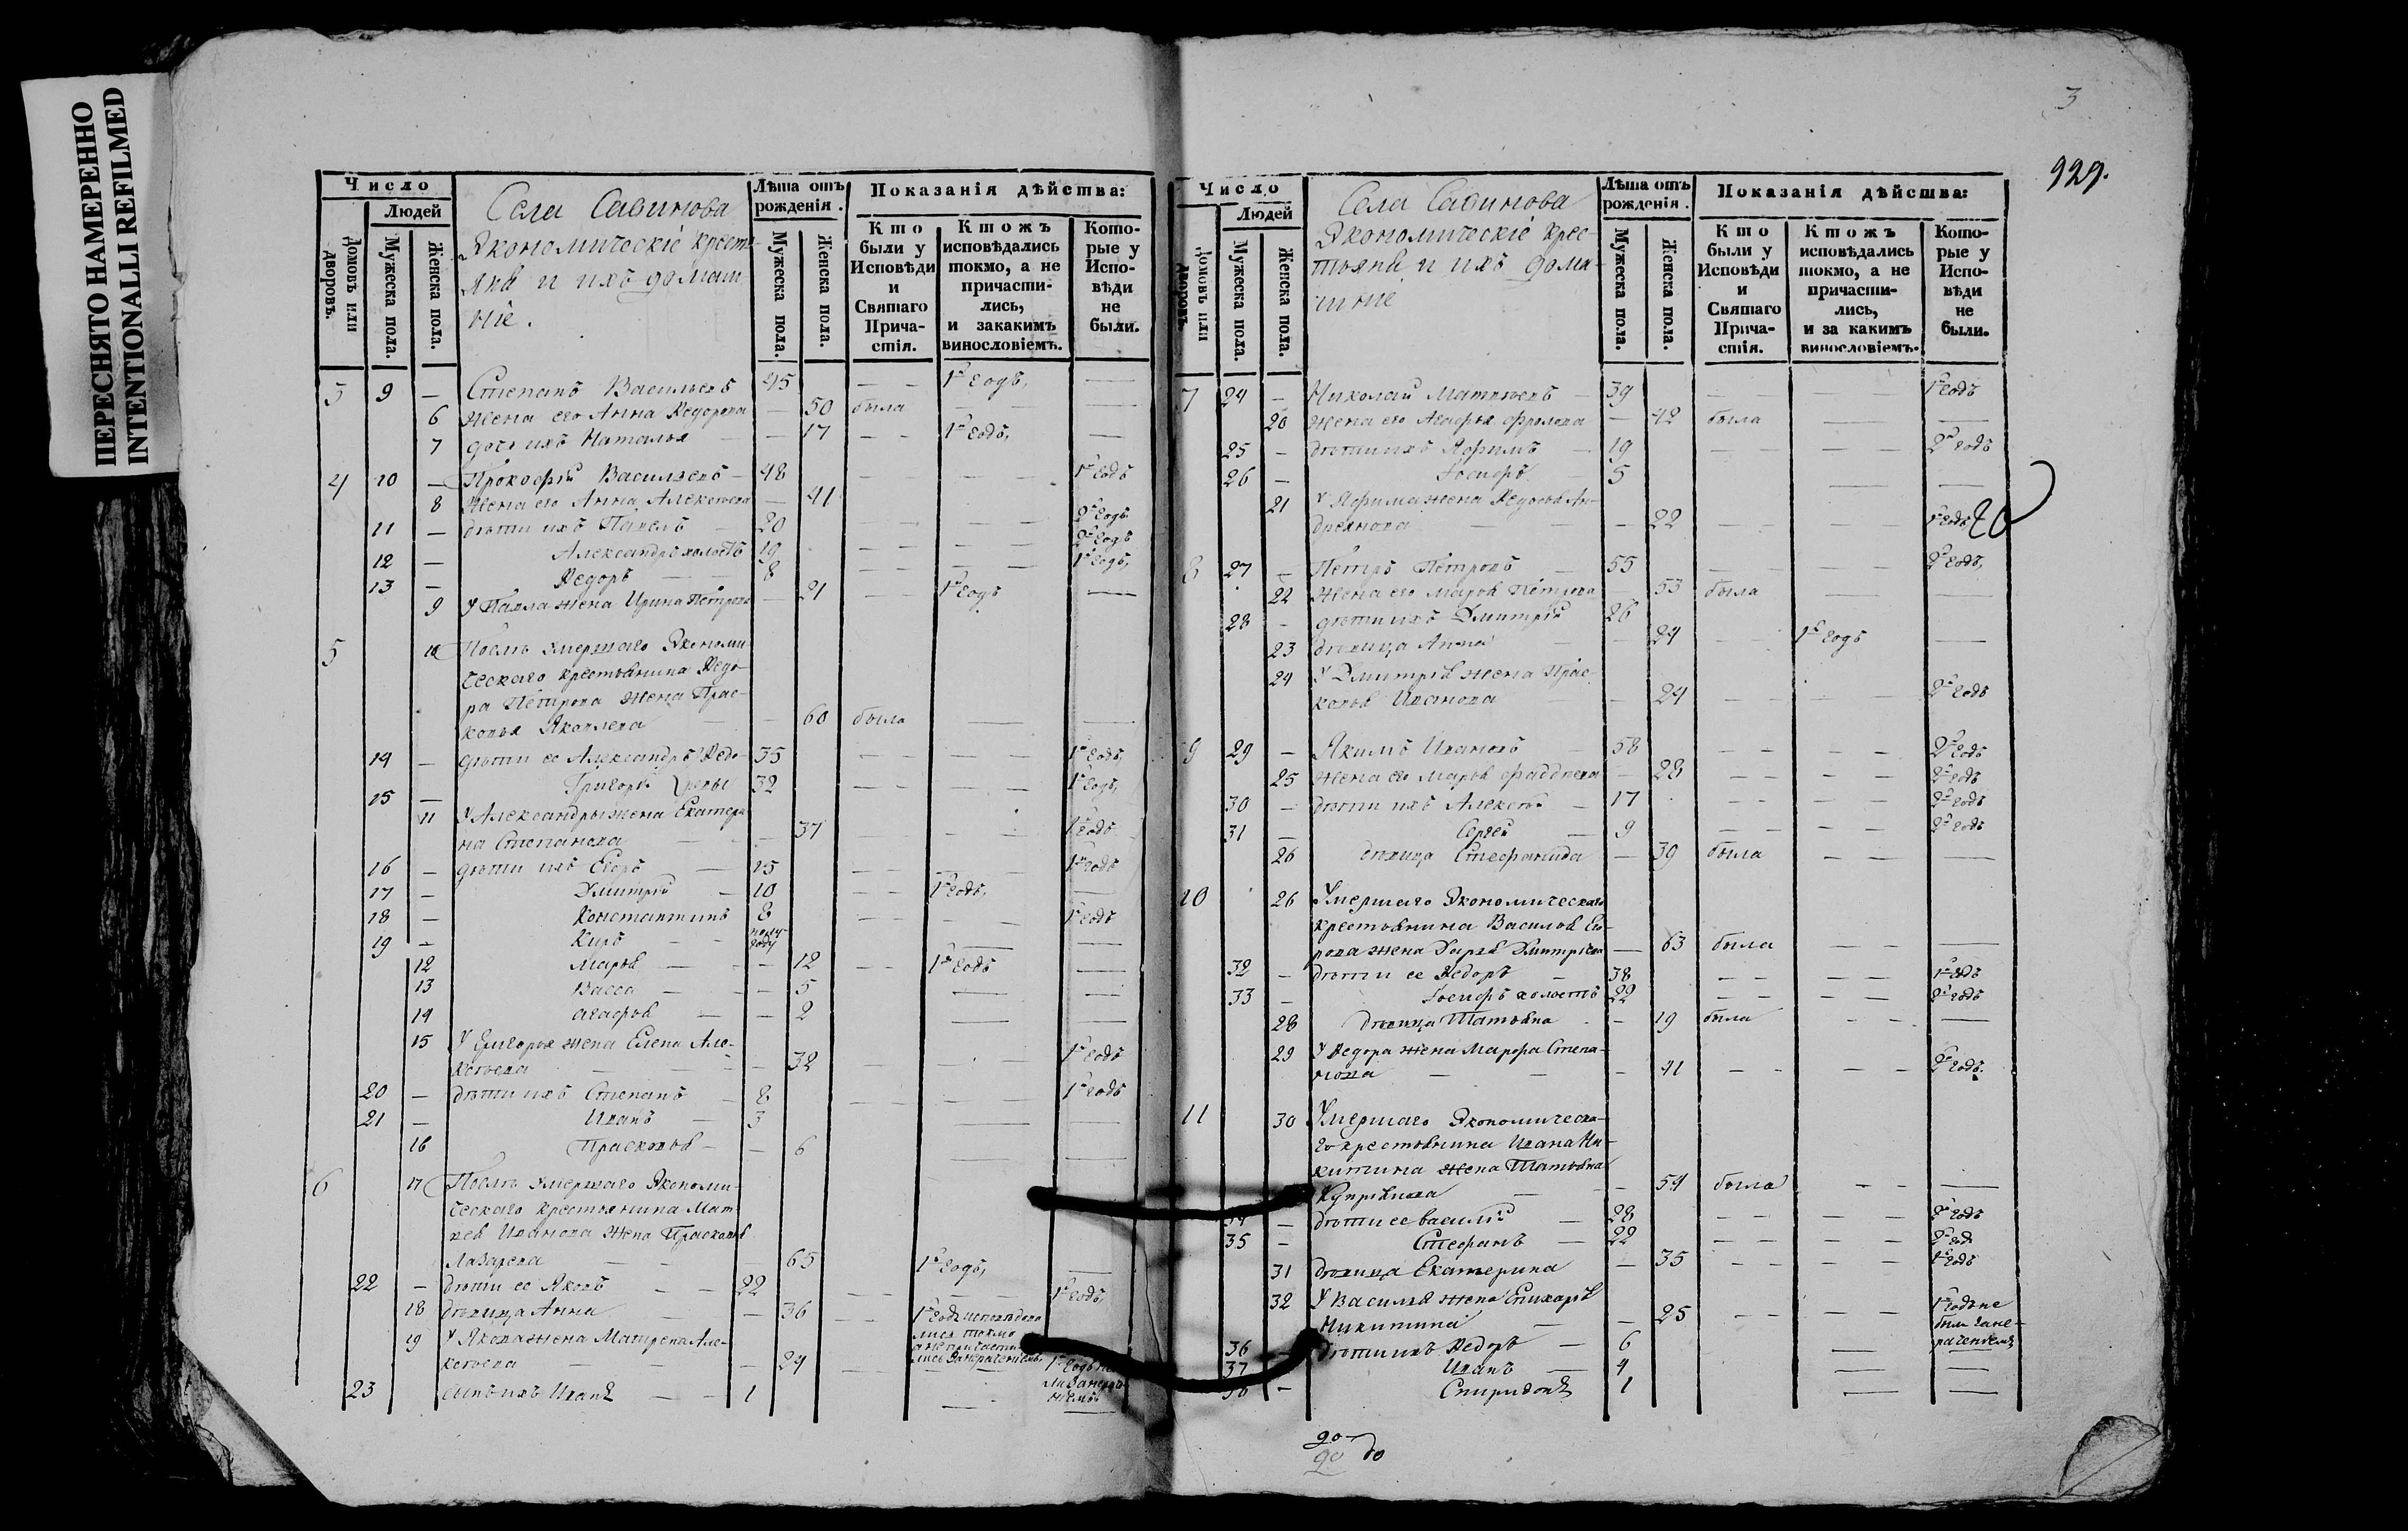 ПЕРЕСНЯТО НАМЕРЕННО
INTENTIONALLI REFILMED
Число
Людей
Домовъ или дворовъ.
Мужеска пола.
Женска пола.
Села Савинова
Экономическіе кресть-
яне и ихъ домаш
ніе.
Лѣта отъ рожденія.
Мужеска пола.
Женска пола.
Показанія дѣйства:
Кто были у Исповѣди и Святаго Прича-стія.
Ктожъ исповѣдались токмо, а не причасти-лись, и закакимъ винословіемъ.
Кото-рые у Испо-вѣди не были.
3 9 — Степанъ Васильевъ 45 — — 1й годъ, —
6 Жена его Анна Федорова — 50 была — —
7 дочь ихъ Наталья — — 17 — — 1й годъ, —
4 10 — Прокофій Васильевъ — 48 — — 1й годъ
8 Жена его Анна Алексѣева — 41 2й годъ
11 — дѣти ихъ Павелъ — 20 — — 2й годъ
12 — Александръ холостъ 19 — — 1й годъ,
13 — Федоръ — 8
9 У Павла жена Ирина Петрова — 21 — 1й годъ —
5 10 Послѣ умершаго Экономи
ческаго крестьянина Федо-
ра Петрова жена Прас-
ковья Яковлева — 60 была — —
14 — дѣти ее Александръ Федо- 35 — — 1й годъ,
15 — Григорій ровы 32 — — 1й годъ,
11 У Александры жена Екатери
на Степанова — 37 — — 1й годъ
16 — дѣти ихъ Егоръ — 15 — — 1й годъ
17 — Дмитрій — 10 1й годъ, —
18 — Константинъ 8 — — 1й годъ
19 — Киръ — полу году — —
12 Марья — — 12 — — 1й годъ —
13 Васса — — 5 — —
14 Агафья — — 2 — —
15 У Григорья жена Елена Але-
ксѣева — 32 — — 1й годъ
20 — дѣти ихъ Степанъ — 8 — — 1й годъ
21 — Иванъ — 3 — —
16 Прасковья — — 6 — —
6 17 Послѣ умершаго Экономи-
ческаго крестьянина Мат
вея Иванова жена Прасковья
Лазарева — 65 1й годъ, —
22 — дѣти ее Яковъ — — 22 — — 1й годъ,
18 дѣвица Анна — — 36 — — 1й годъ исповѣдова
лись токмо
а не причасти
лись
19 У Якова жена Матрена Але-
ксѣева — — 24 — 1й годъ
23 сынъ ихъ Иванъ — — 1 — —
3
929.
Число
Людей
Домовъ или дворовъ.
Мужеска пола.
Женска пола.
Села Савинова
Экономическіе крес-
тьяне и ихъ дома-
шніе
Лѣта отъ рожденія.
Мужеска пола.
Женска пола.
Показанія дѣйства:
Кто были у Исповѣди и Святаго Прича-стія.
Ктожъ исповѣдались токмо, а не причасти-лись, и за какимъ винословіемъ.
Кото-рые у Испо-вѣди не были.
7 24 — Николай Матвѣевъ — 39 — — 1й годъ
20 жена его Агафья Фролова — 42 была — —
25 — дѣти ихъ Яфимъ — 19 — — 2й годъ
26 — Іосифъ 5 — —
21 У Яфима жена Федосья Ан-
дреянова — 22 — — 1й годъ
20
8 27 — Петръ Петровъ — 55 — — 2й годъ,
22 жена его Марья Петрова — 53 была — —
28 — дѣти ихъ Дмитрій 26
23 дѣвица Анна — — 24 — — 1й годъ —
24 У Дмитрія жена Прас-
ковья Иванова — 24 — — 2й годъ
9 29 — Якимъ Ивановъ — 58 — — 2й годъ
25 жена его Марья Фаддеева — 28 — — 2й годъ
30 — дѣти ихъ Алексѣй — 17 — — 2й годъ
31 — Сергѣй — 9 — — 2й годъ
26 дѣвица Стефанида — 39 была — —
10 26 Умершаго Экономическаго
крестьянина Василья Его-
рова жена Дарья Дмитріева — 63 была — —
32 — дѣти ее Федоръ — 38 — — 1й годъ
33 — Іосифъ холостъ 22 — — 2й годъ
28 дѣвица Татьяна — 19 была — —
29 У Федора жена Марфа Степа-
нова — 41 — — 2й годъ.
11 30 Умершаго Экономическа-
го крестьянина Ивана Ни-
китина жена Татьяна
Купріянова — 54 была — —
34 — дѣти ее Василій — 28 — — 2й годъ
35 — Стефанъ — 22 — — 2й годъ
31 дѣвица Екатерина — 35 — — 1й годъ
32 У Василья жена Епихарія
Никитина — 25 — — 1й годъ не
были за не-
раченіемъ
36 — дѣти ихъ Федоръ — 6 —
37 — Иванъ — 4 — —
38 — Спиридонъ 1 — —
20
20 до